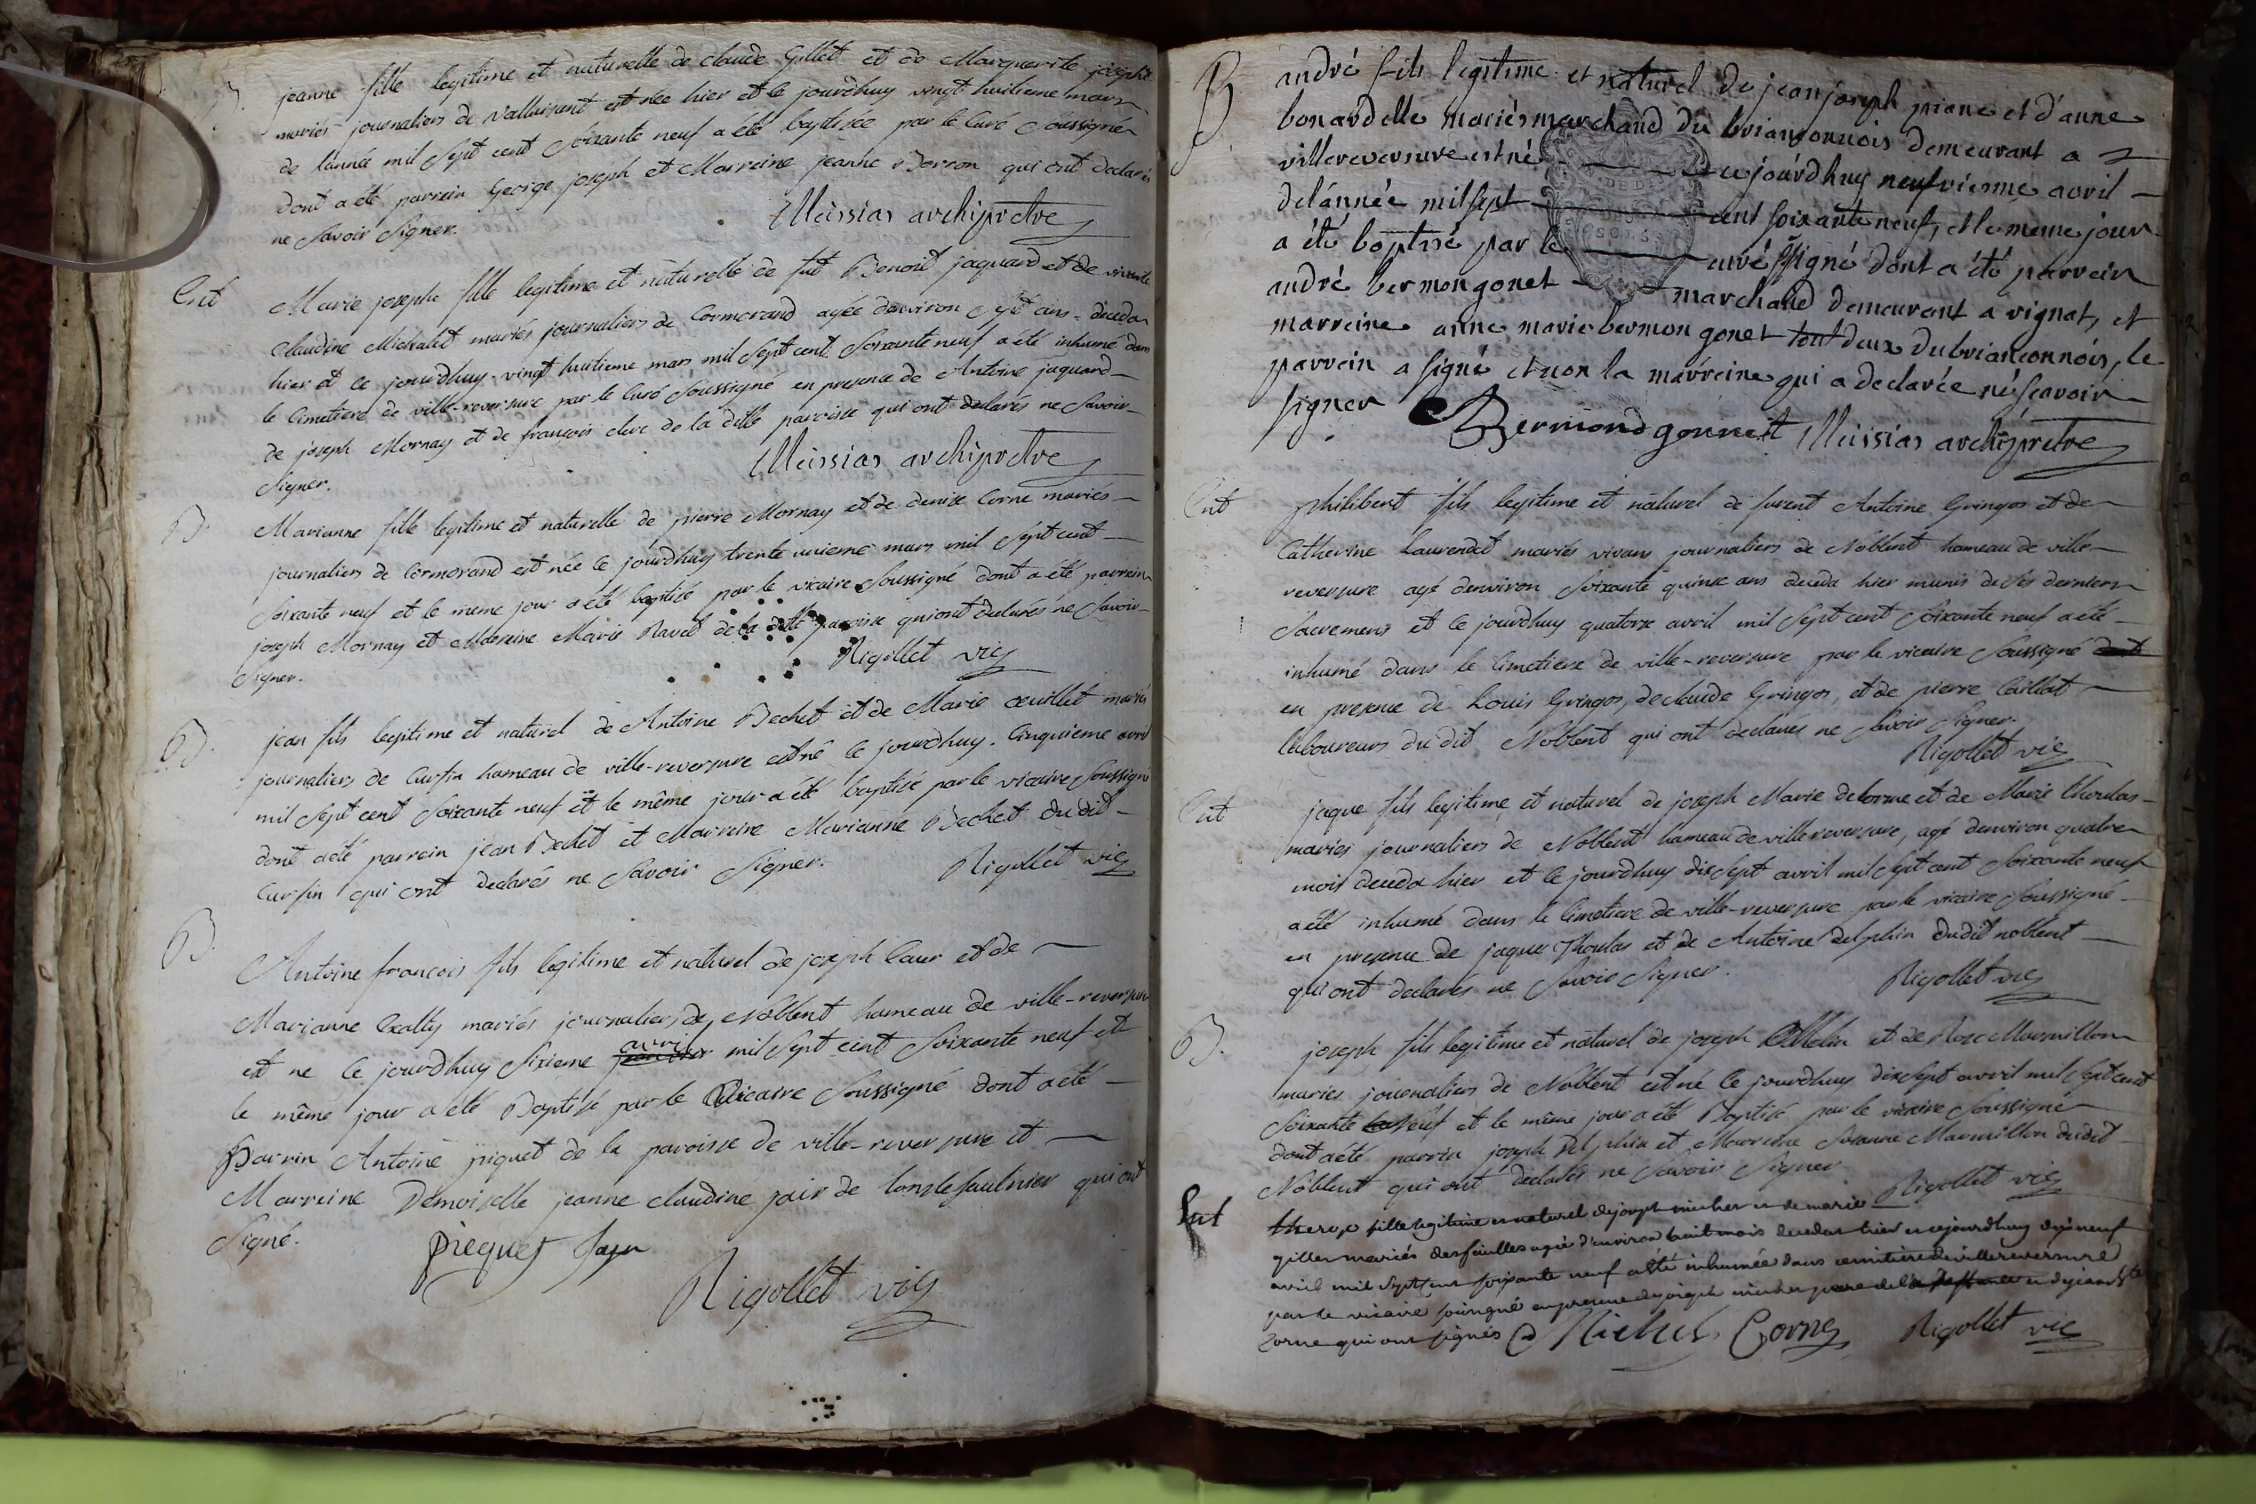 B.
jeanne fille legitime et naturelle de claude Gillet et de Marguerite joseph
mariés journaliers de valluisant est née hier et le jourdhuy vingt huitieme mars
de lannée mil sept cent soixante neuf a été baptisée par le Curé soussigné
dont a été parrein George joseph et Marreine jeanne Borron qui ont declarés
ne savoir signer.
Meissias archiprêtre
Ent
Marie josephe fille legitime et naturelle de fut Benoit jaquard et de vivante
claudine Michalet mariés journaliers de Cormorand agée denviron sept ans deceda
hier et ce jourdhuy vingt huitieme mars mil sept cent soixante neuf a été inhumé dans
le cimetiere de ville-reversure par le Curé soussigné en presence de Antoine jaquard
de joseph Mornay et de françois clerc de la ditte paroisse qui ont declarés ne savoir
signer.
Meissias archiprêtre
B.
Marianne fille legitime et naturelle de pierre Mornay et de denise Corne mariés
journaliers de Cormorand est née le jourdhuy trente unieme mars mil sept cent
soixante neuf et le meme jour a été baptisé par le vicaire soussigné dont a été parrein
joseph Mornay et Marreine Marie Ravet de la ditte paroisse qui ont declarés ne savoir
signer.
Rigollet vic
B.
jean fils legitime et naturel de Antoine Bechet et de Marie œuillet mariés
journaliers de Cursin hameau de ville-reversure est né le jourdhuy cinquieme avril
mil sept cent soixante neuf et le même jour a été baptisé par le vicaire soussigné
dont a été parrein jean Bechet et Marreine Marianne Bechet du dit
Cursin qui ont declarés ne savoir signer.
Rigollet vic
B.
Antoine francois fils legitime et naturel de joseph Caur et de
Marianne mariés journaliers de Noblent hameau de ville-reversure
est ne le jourdhuy sixieme avril mil sept cent soixante neuf et
le même jour a été Baptisé par le Vicaire soussigné dont a été
Parrin Antoine piquet de la paroisse de ville-reversure et
Marreine Demoiselle jeanne claudine de lonslesaulnier qui ont
signé.
piequet
Rigollet vic
B
andré fils legitime et naturel de jean joseph piane et d'anne
bonardelle mariés marchand du briançonnois demeurant a
villereversure est né cejourdhuy neufviesme avril
de lannée mil sept cent soixante neuf, et le meme jour
a été baptisé par le curé ssigné dont a été parrein
andré bermongonet marchand demeurant a vignat, et
marreine anne marie bermon gonet tout deux du briançonnois, le
parrein a signé et non la marreine qui a declarée ne scavoir
signer
Bermondgonnet Meissias archiprêtre
Ent
philibert fils legitime et naturel de furent Antoine Gringos et de
Catherine Laurendet mariés vivans journaliers de Noblent hameau de ville-
reversure agé denviron soixante quinze ans deceda hier munis de ses derniers
sacremens et le jourdhuy quatorze avril mil sept cent soixante neuf a été
inhumé dans le cimetiere de ville-reversure par le vicaire soussigné
en presence de Louis Gringos, de claude Gringos et de pierre Caillat
laboureurs du dit Noblent qui ont declarés ne savoir signer.
Rigollet vic
Ent
jaque fils legitime et naturel de joseph Marie delorme et de Marie thoulas
mariés journaliers de Noblent hameau de ville reversure, agé denviron quatre
mois deceda hier et le jourdhuy dixsept avril mil sept cent soixante neuf
a été inhumé dans le cimetiere de ville-reversure par le vicaire soussigné
en presence de jaque thoulas et de Antoine delphin du dit noblent
qui ont declarés ne savoir signer.
Rigollet vic
B.
joseph fils legitime et naturel de joseph et de Rose Marmillon
mariés journaliers de Noblent est né le jourdhuy dixsept avril mil sept cent
soixante neuf et le même jour a été Baptisé par le vicaire soussigné
dont a été parrin joseph Delphin et Marreine Susanne Marmillon du dit
Noblent qui ont declarés ne savoir signer
Rigollet vic
Ent
therese fille legitime et naturel de joseph micher et de marie
gillet mariés des feuilles agée d'environ huit mois deceda hier et cejourdhuy dixneuf
avril mil sept cent soixante neuf a été inhumée dans cemitiere de villereversure
par le vicaire soussigné en presence de joseph micher pere et de jean bte
Corne qui ont signés Michel Corne Rigollet vic